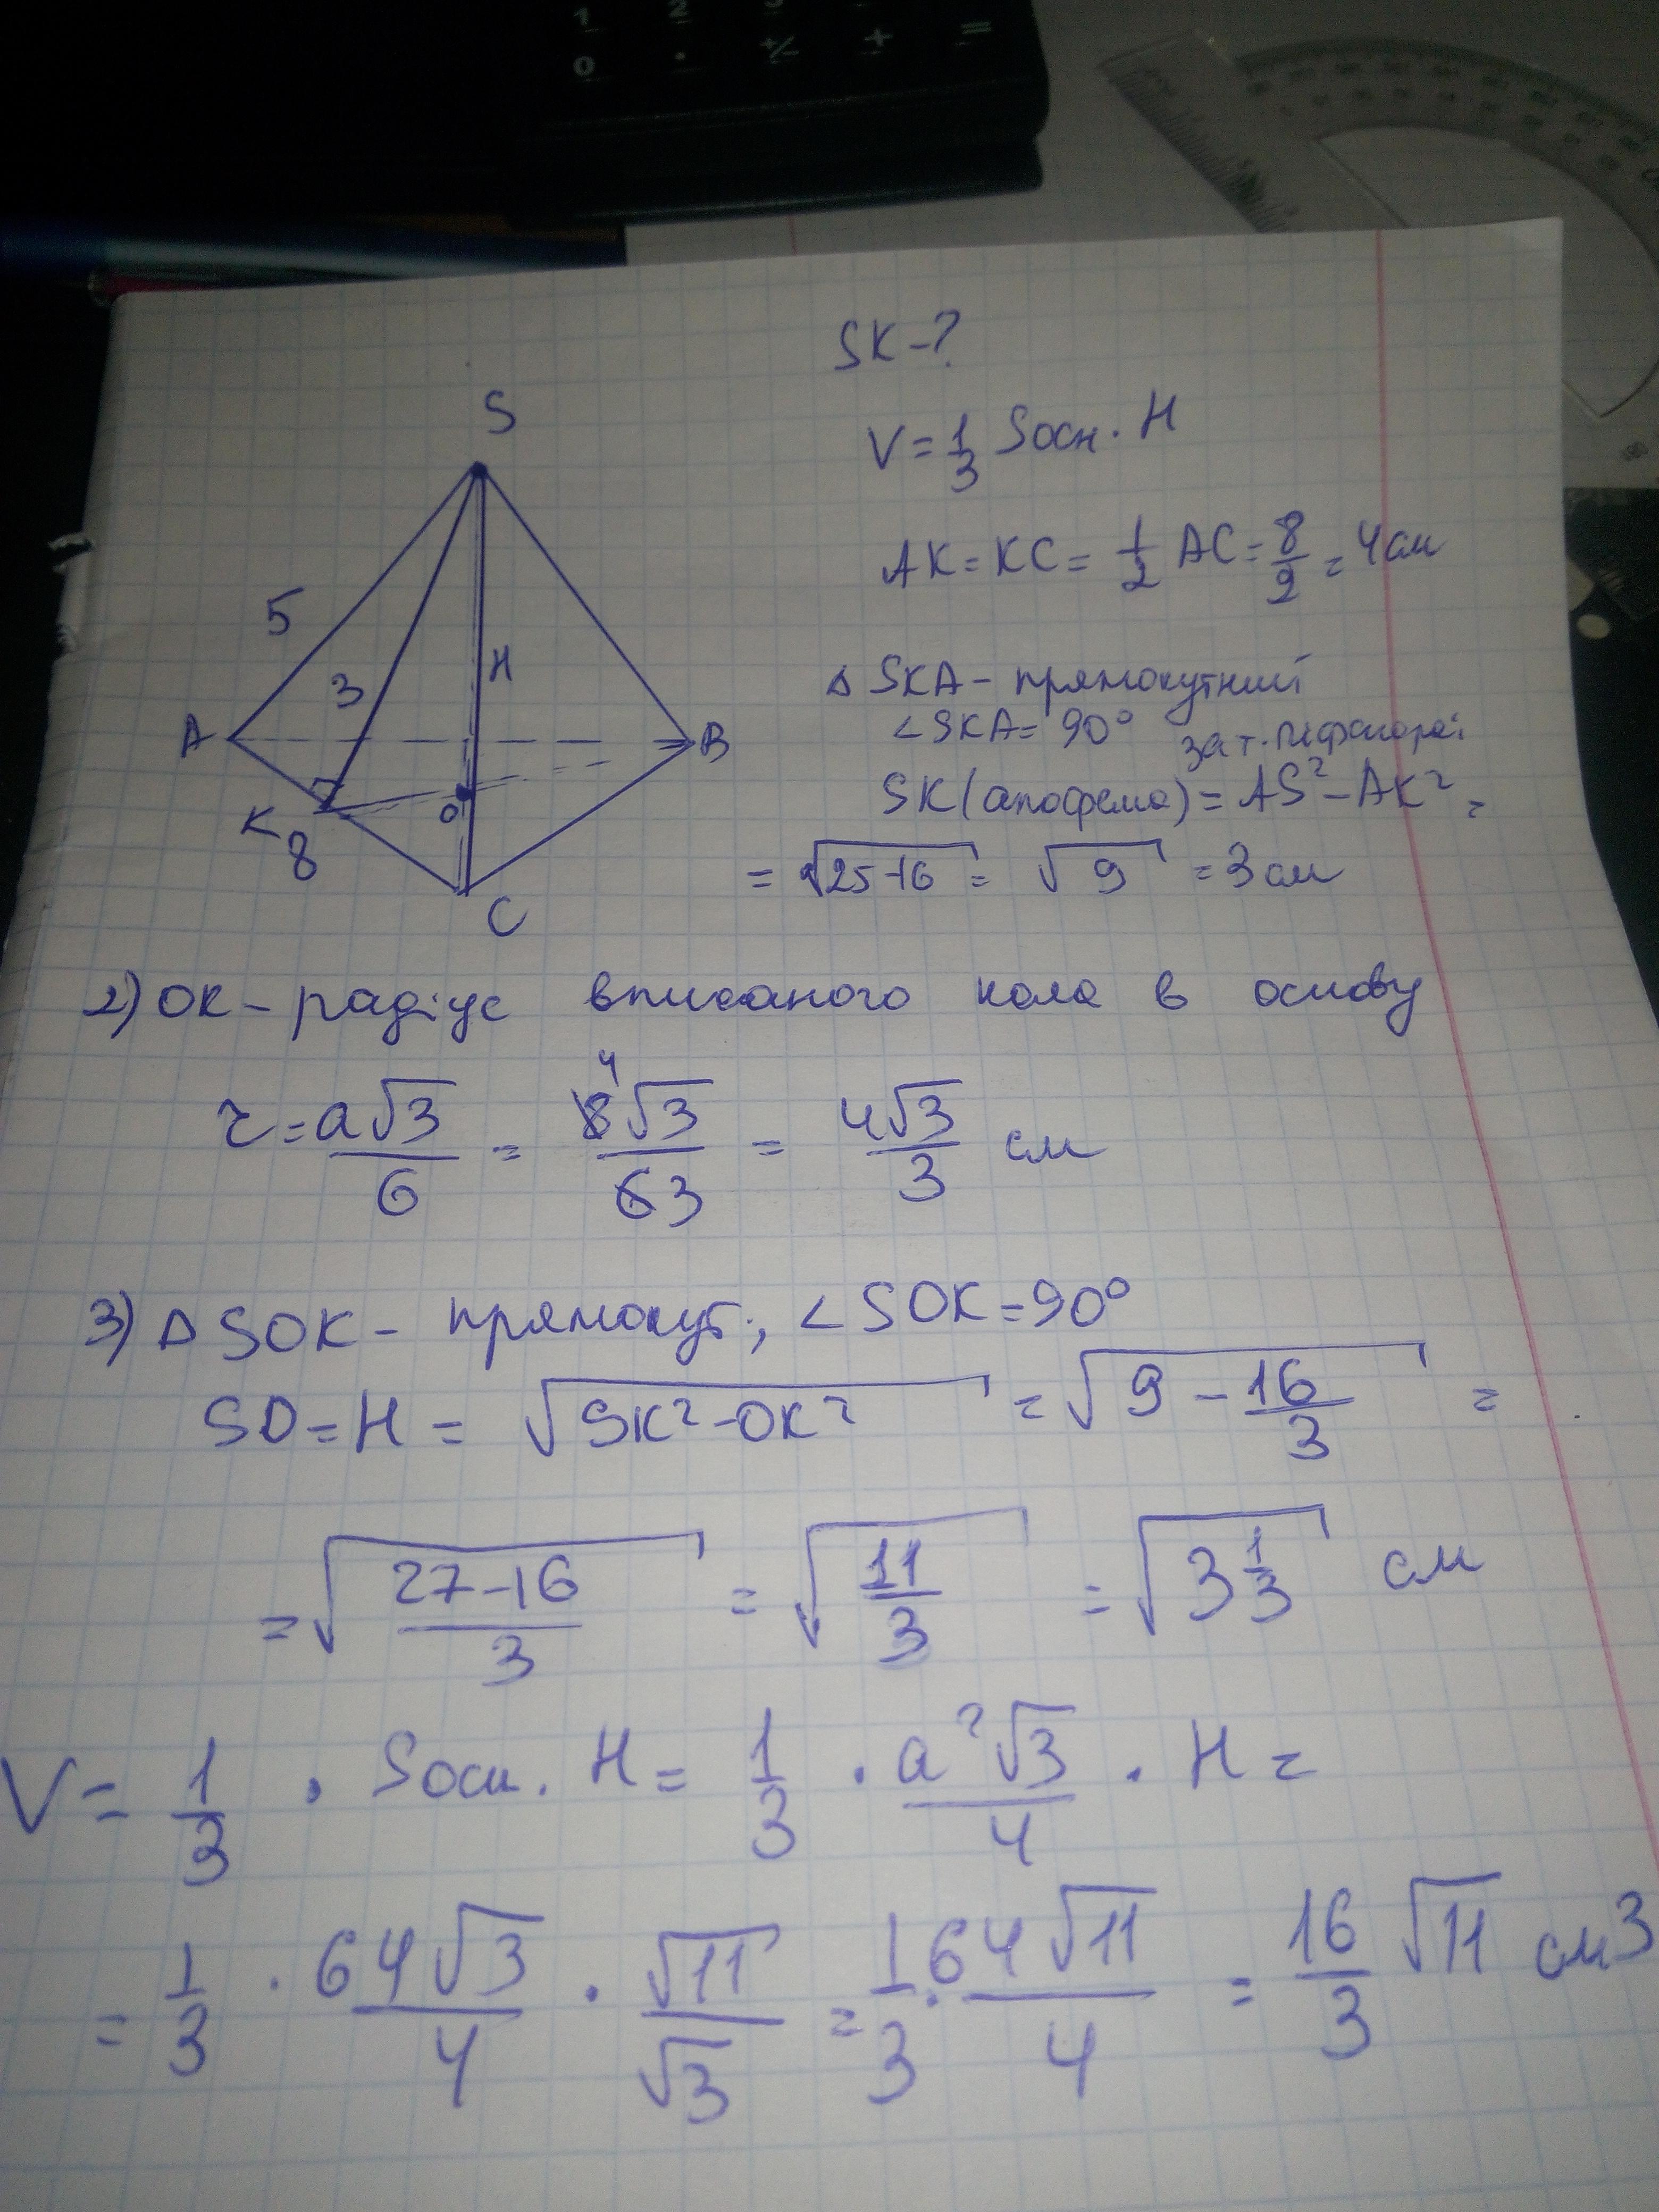 1 2 3
0 . +/- + =
SK-?
S
V = 1/3 Sосн. H
AK = KC = 1/2 AC = 8/2 = 4 см
5
3
H
Δ SKA - прямокутний
A
B
∠SKA = 90° за т. Піфагора:
K
O
SK (апофема) = AS² - AK² =
8
= √25-16 = √9 = 3 см
C
2) OK - радіус вписаного кола в основу
r = a√3/6 = 8√3/6 4 3 = 4√3/3 см
3) Δ SOK - прямокут., ∠SOK = 90°
SO = H = √SK² - OK² = √9 - 16/3 =
= √27-16/3 = √11/3 = √3 1/3 см
V = 1/3 · Sосн. H = 1/3 · a²√3/4 · H =
= 1/3 · 64√3/4 · √11/√3 = 1/3 · 64√11/4 = 16/3 √11 см3